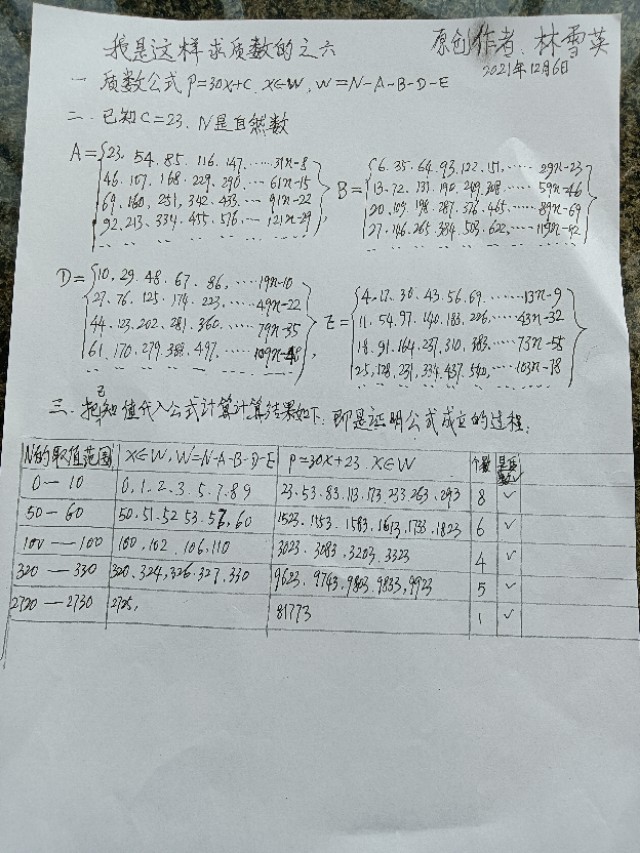 我是这样求质数的之六
原创作者、林雪英
2021年12月6日
一 质数公式 P=30X+C、X∈W、W=N-A-B-D-E
二、已知C=23、N是自然数
A={23、54、85、116、147、……31n-8
46、107、168、229、290、…61n-15
69、160、251、342、433、…91n-22
92、213、334、455、576、…121n-29
B={6、35、64、93、122、151、……29n-23
13、72、131、190、249、308、……59n-46
20、109、198、287、376、465、……89n-69
27、146、265、384、503、622、……119n-92
D={10、29、48、67、86、……19n-10
27、76、125、174、223、……49n-22
44、123、202、281、360、……79n-35
61、170、279、388、497、……109n-48
E={4、17、30、43、56、69、……13n-9
11、54、97、140、183、226、……43n-32
18、91、164、237、310、383、……73n-55
25、128、231、334、437、540、……103n-78
三、把已知值代入公式计算计算结果如下、即是证明公式成立的过程:
N的取值范围 X∈W、W=N-A-B-D-E P=30X+23、X∈W 个数 是质数✓
0—10 0、1、2、3、5、7、8、9 23、53、83、113、173、233、263、293 8 ✓
50—60 50、51、52、53、57、60 1523、1553、1583、1613、1733、1823 6 ✓
100—100 100、102、106、110 3023、3083、3203、3323 4 ✓
320—330 320、324、326、327、330 9623、9743、9803、9833、9923 5 ✓
2720—2730 2725、 81773 1 ✓